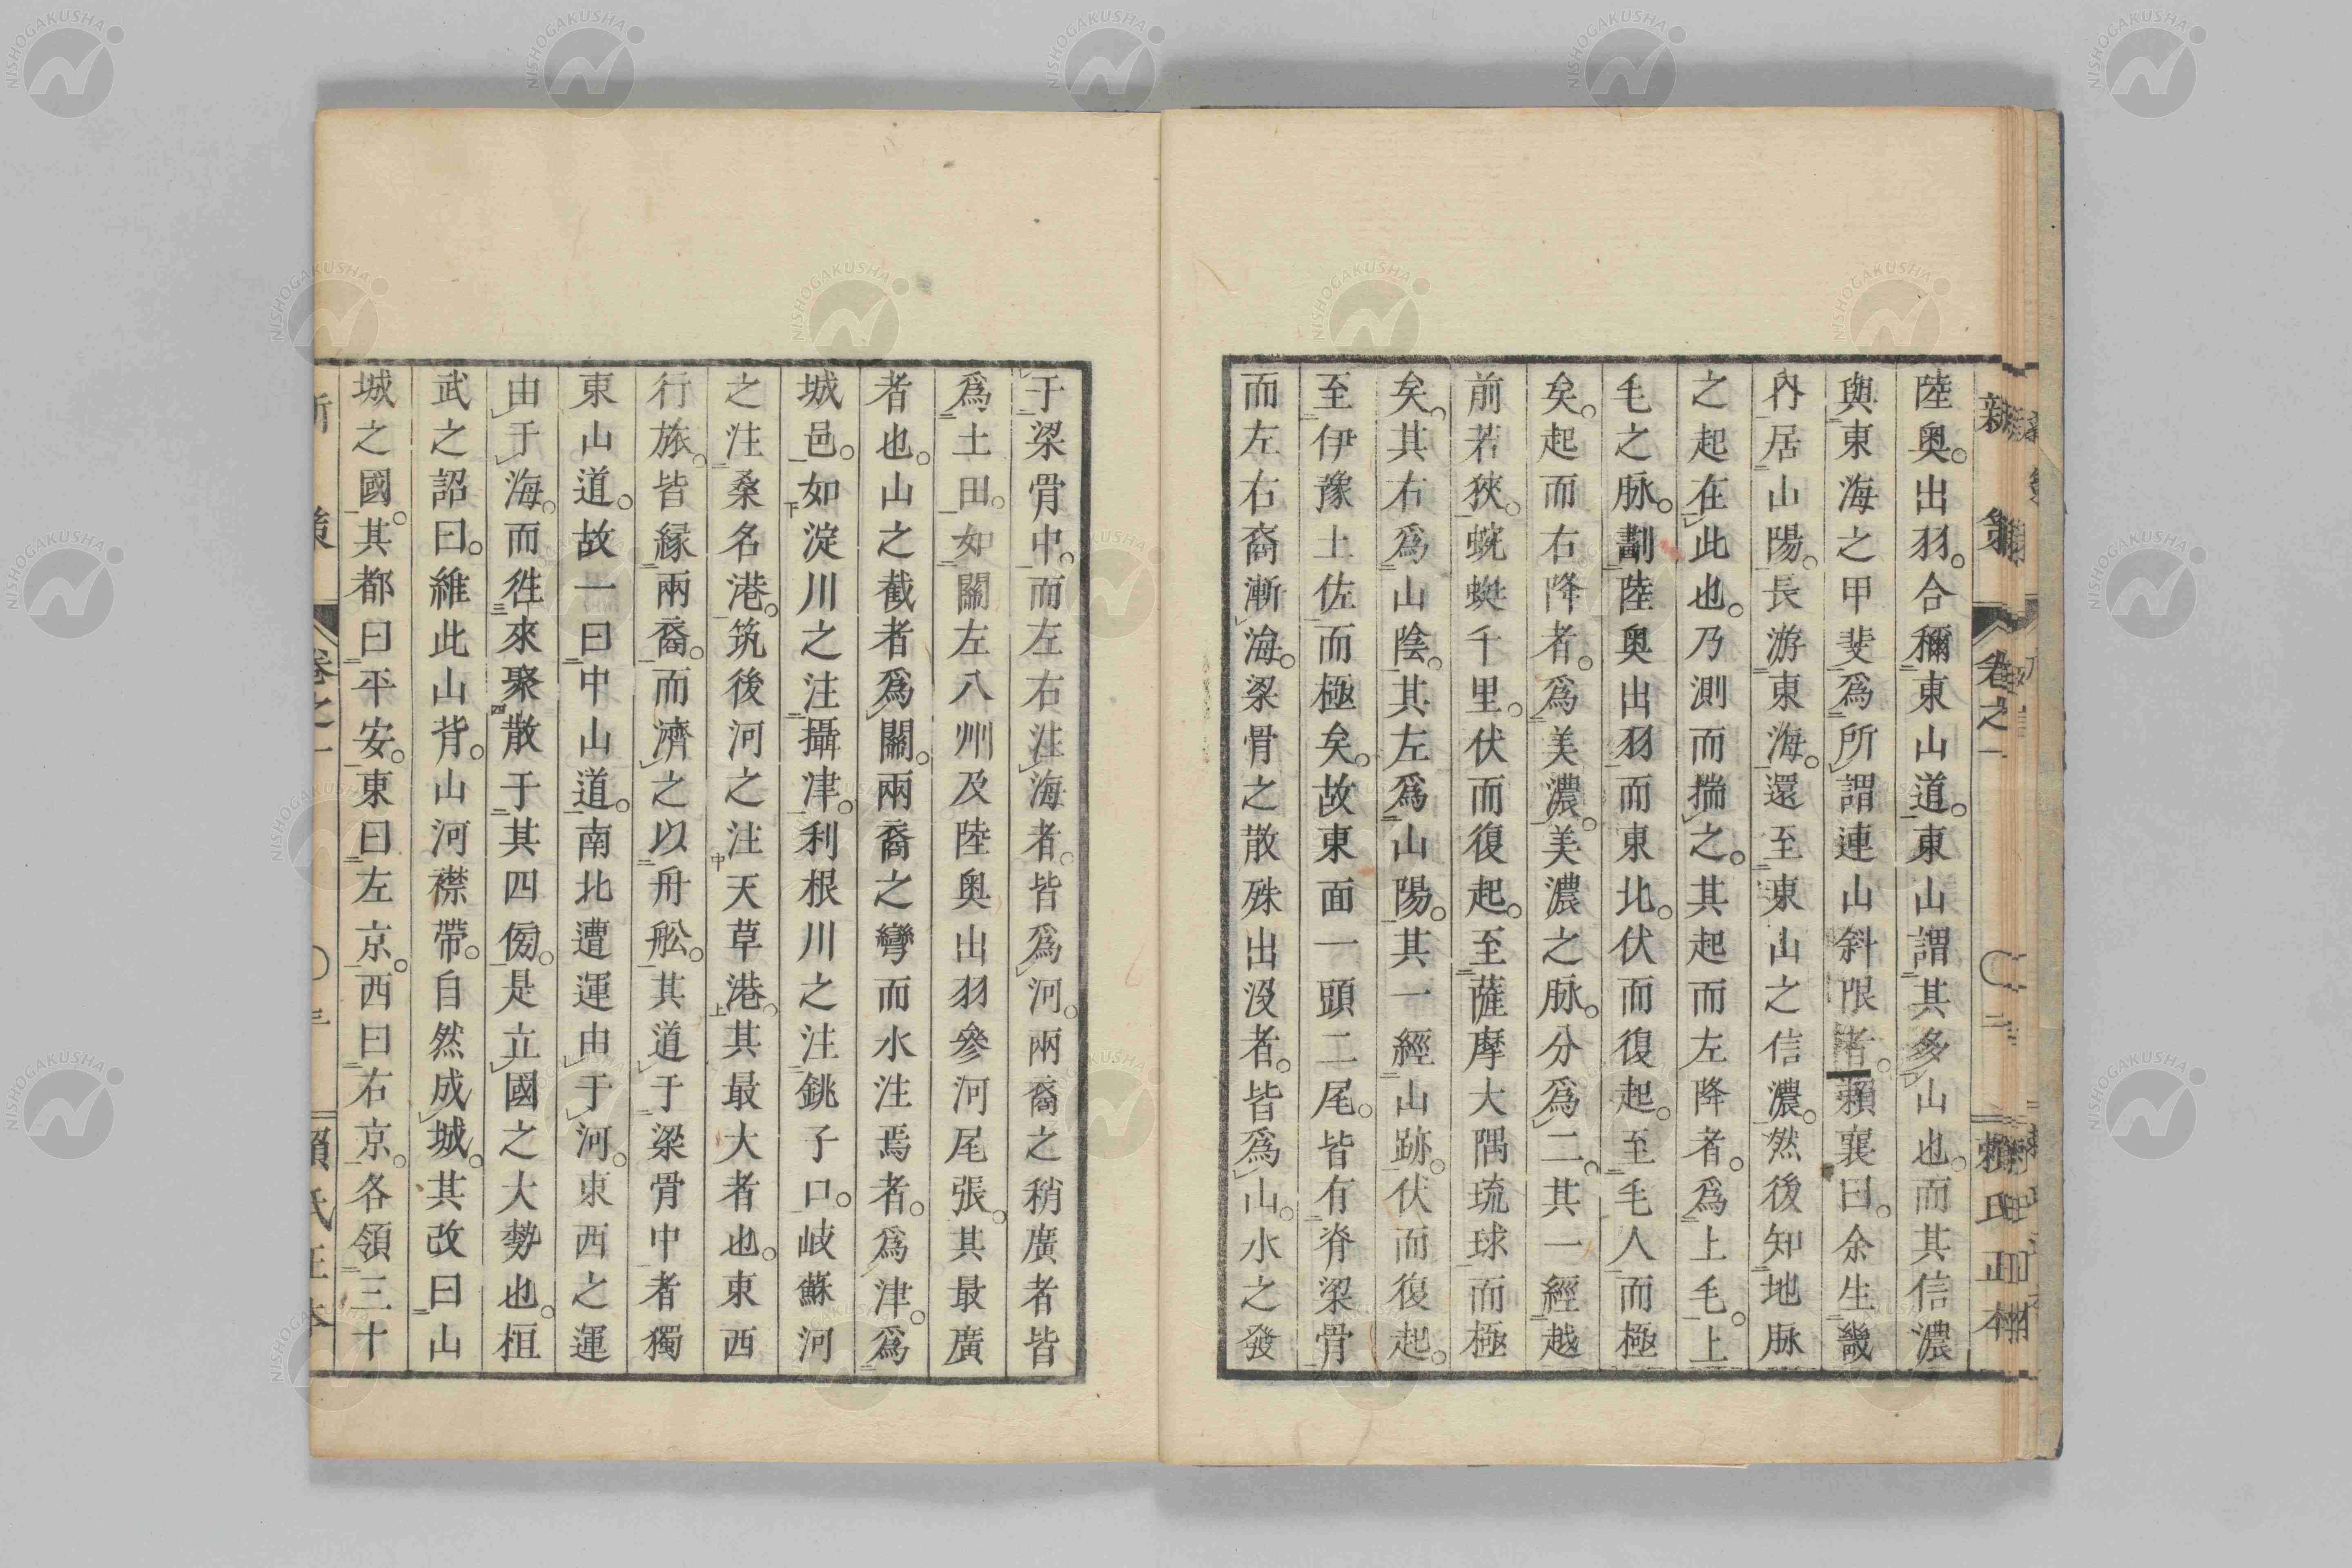 新策 卷之一 〇二 賴氏正本
陸奧。出羽。合稱東山道。東山謂其多山也。而其信濃
與東海之甲斐爲所謂連山斜限者。賴襄曰。余生畿
內居山陽。長游東海。還至東山之信濃。然後知地脉
之起在此也。乃測而揣之。其起而左降者。爲上毛。上
毛之脉。劃陸奧出羽而東北。伏而復起。至毛人而極
矣。起而右降者。爲美濃。美濃之脉。分爲二。其一經越
前若狹。蜿蜒千里。伏而復起。至薩摩大隅琉球而極
矣。其右爲山陰。其左爲山陽。其一經山跡。伏而復起。
至伊豫土佐而極矣。故東面一頭二尾。皆有脊梁骨
而左右裔漸海。梁骨之散殊出沒者。皆爲山。水之發
于梁骨中。而左右注海者。皆爲河。兩裔之稍廣者皆
爲土田。如關左八州及陸奧出羽參河尾張。其最廣
者也。山之截者爲關。兩裔之彎而水注焉者。爲津。爲
城邑。如淀川之注攝津。利根川之注銚子口。岐蘇河
之注桑名港。筑後河之注天草港。其最大者也。東西
行旅。皆緣兩裔。而濟之以舟舩。其道于梁骨中者獨
東山道。故一曰中山道。南北遭運由于河。東西之運
由于海。而徃來聚散于其四傍。是立國之大勢也。桓
武之詔曰。維此山背。山河襟帶。自然成城。其改曰山
城之國。其都曰平安。東曰左京。西曰右京。各領三十